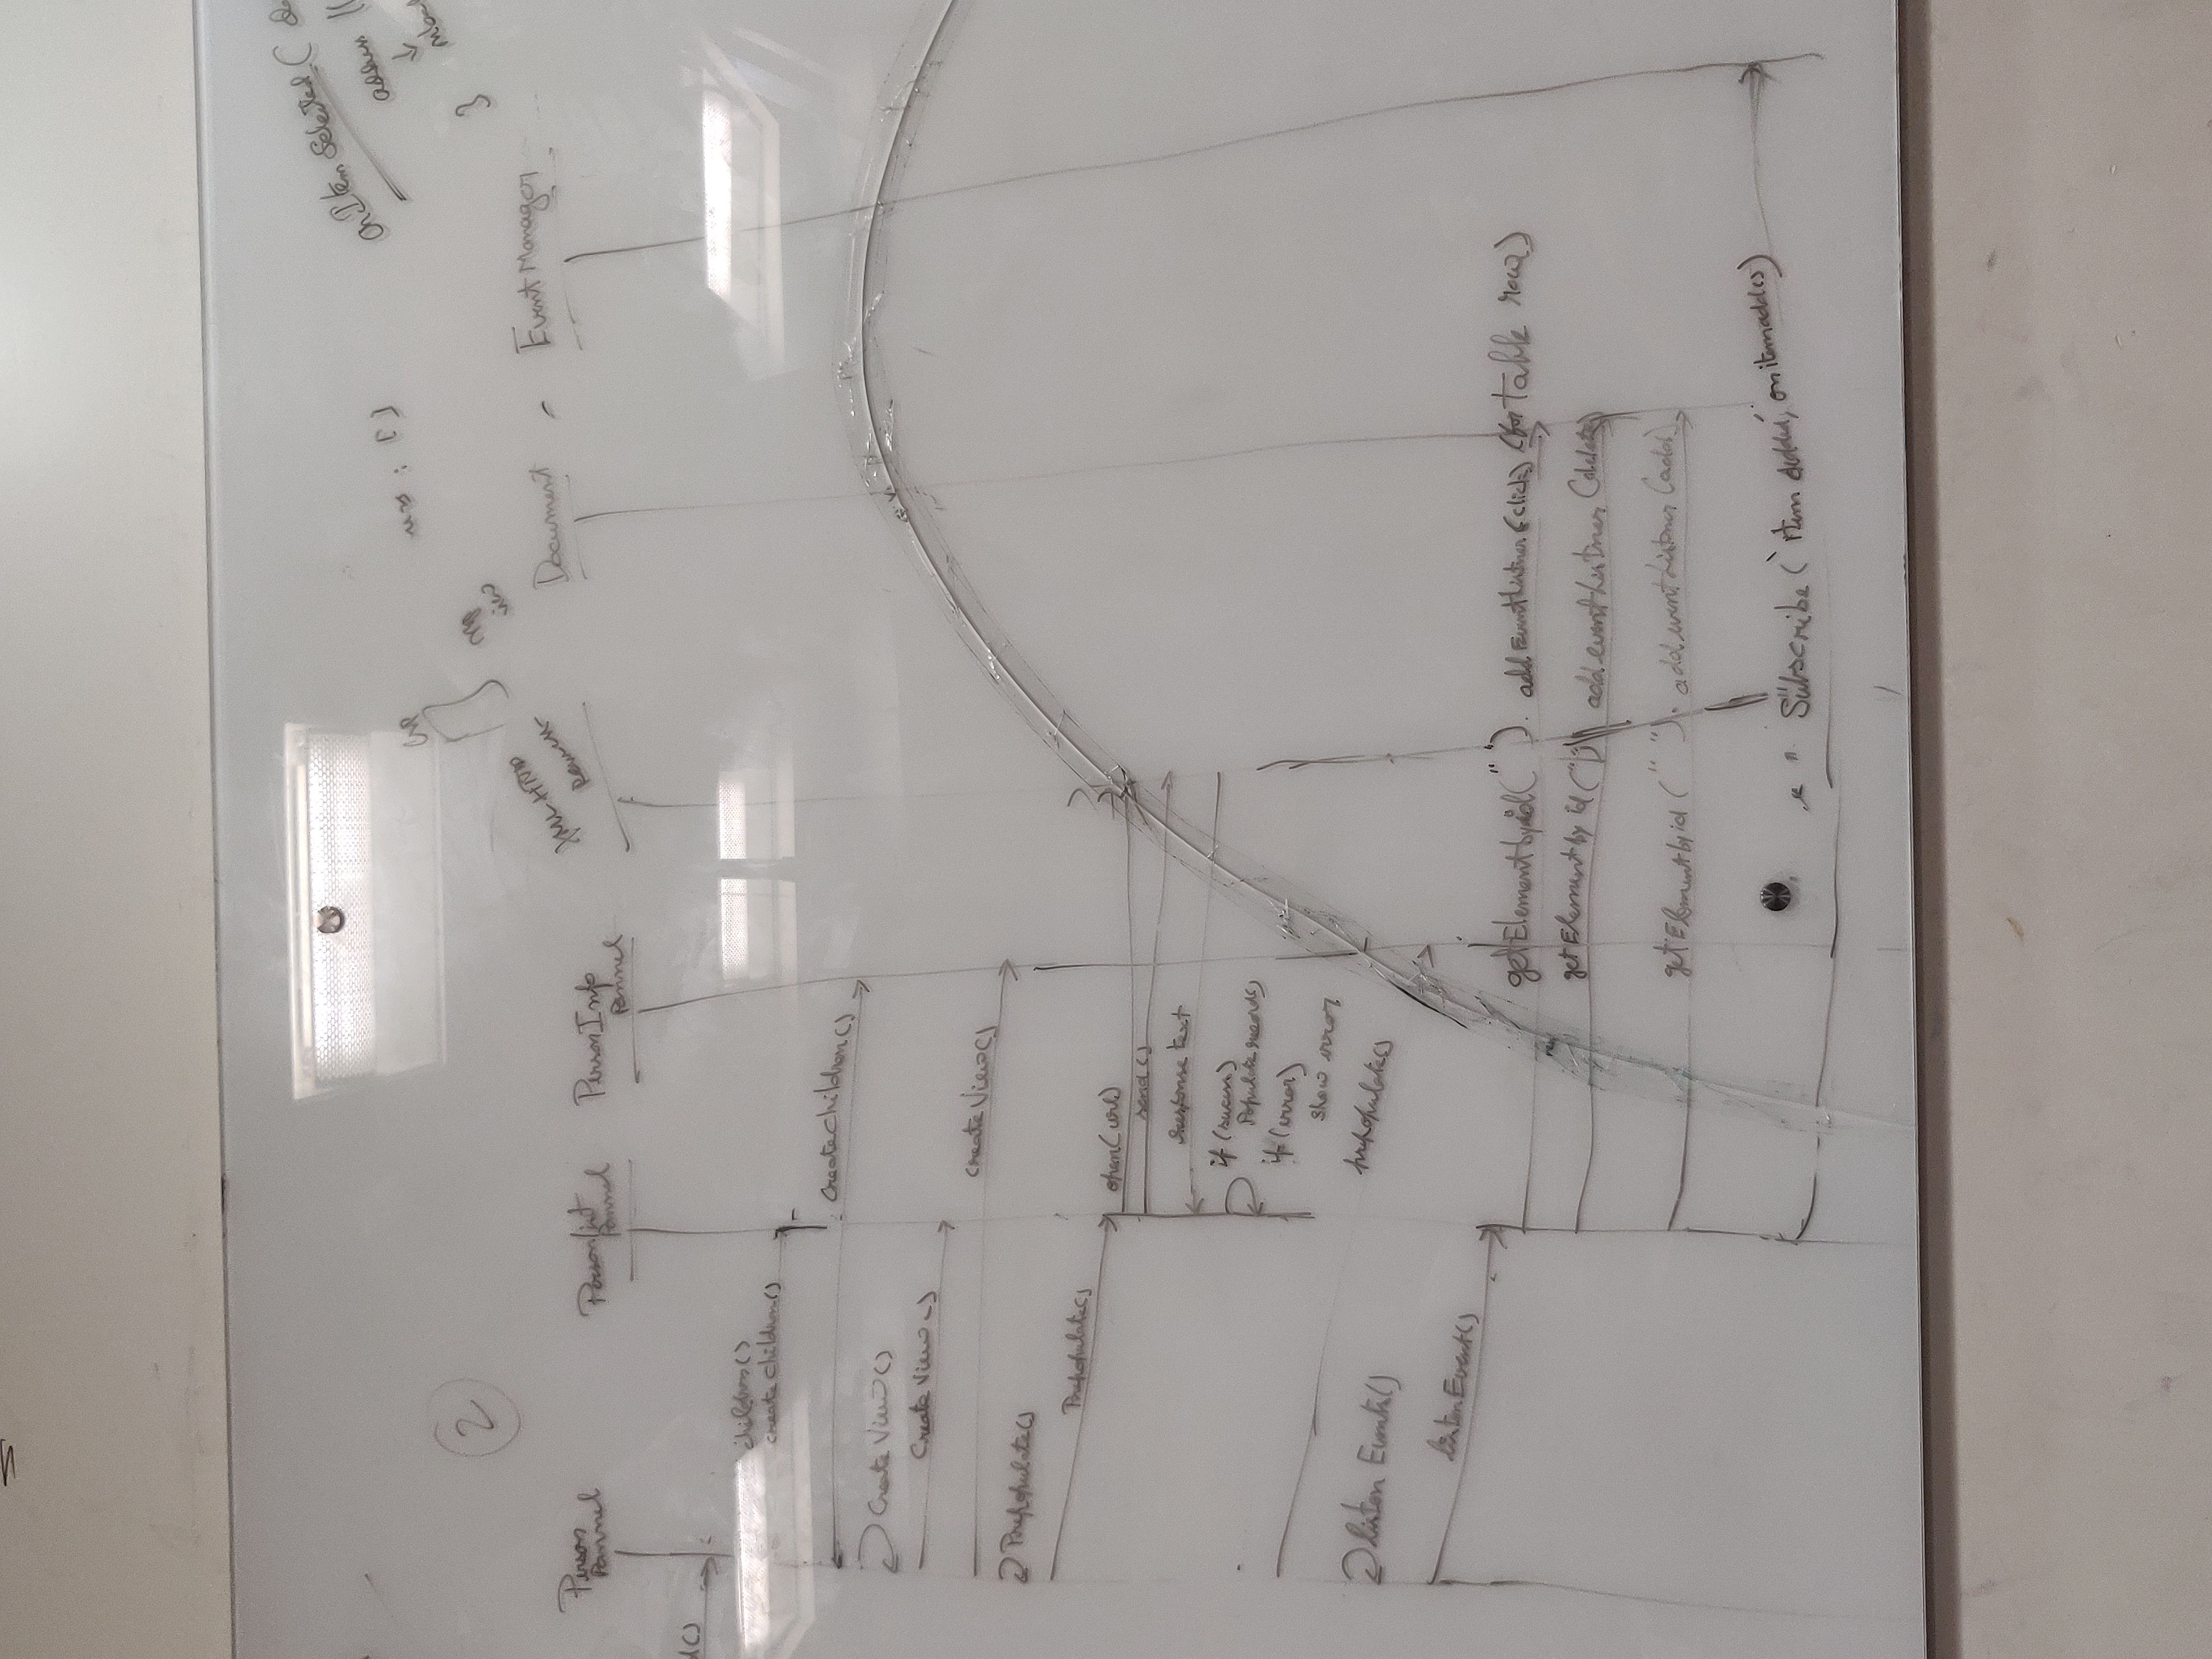 onItem Selected (
address
}
: [ ]
2
Person
Pannel
Personlist
Pannel
PersonInfo
Pannel
XML HTTP
Request
Document
EventManager
d()
children()
create children()
Createchildren()
Create View()
Create View()
Create View()
Prepopulate()
Prepopulate()
open(url)
send()
Response text
if (sucess)
Populate record()
if (error)
show error
prepopulate()
listen Events()
listenEvent()
getElementbyid(" "). add EventListner (click) (for table row)
getElementby id (" ") add.eventListner (delete)
getElementbyid (" "). add.eventListner (add)
Subscribe ('Item added', onitemadd())